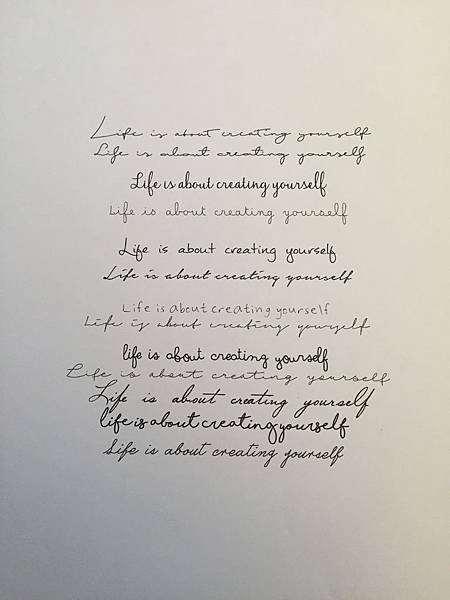 Life is about creating yourself
Life is about creating yourself
Life is about creating yourself
Life is about creating yourself
Life is about creating yourself
Life is about creating yourself
Life is about creating yourself
Life is about creating yourself
life is about creating yourself
Life is about creating yourself
Life is about creating yourself
life is about creating yourself
Life is about creating yourself